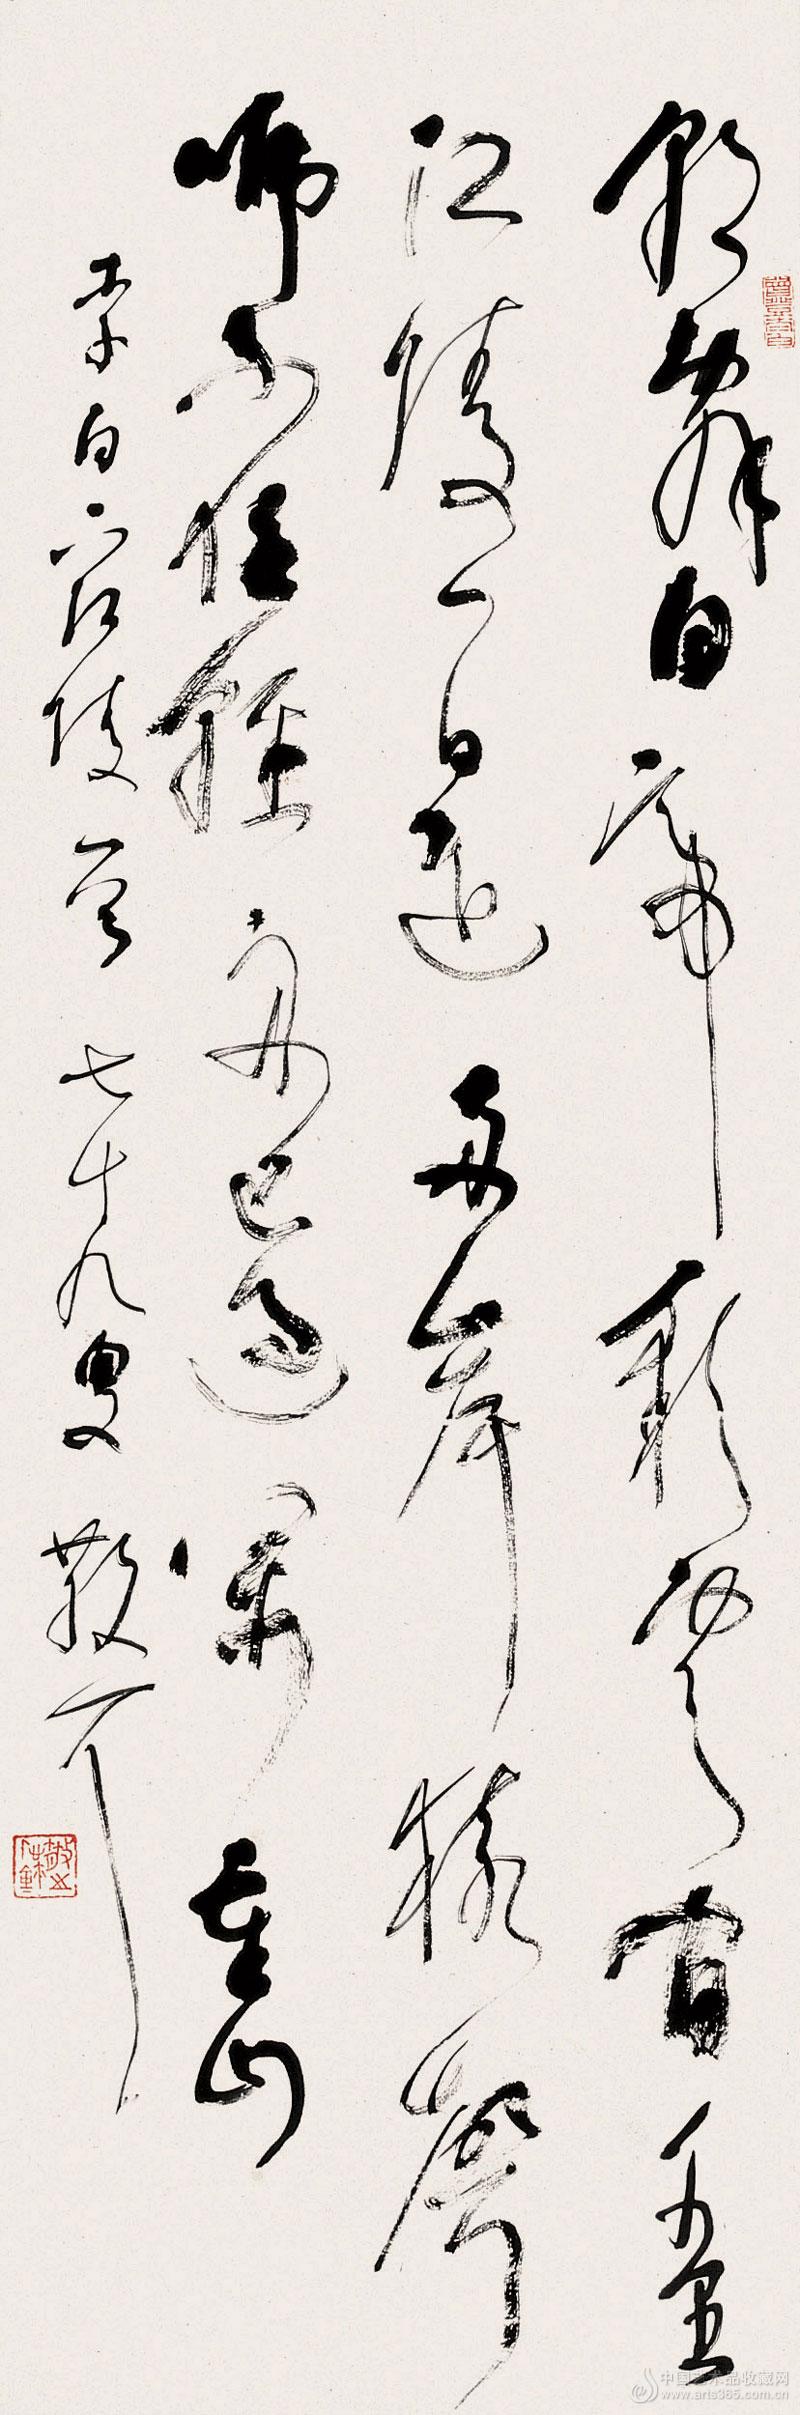 朝辞白帝彩云间千里
江陵一日还两岸猿声
啼不住轻舟已过万重山
李白下江陵一首 七十九叟 散之
中国艺术品收藏网
www.arts365.com.cn